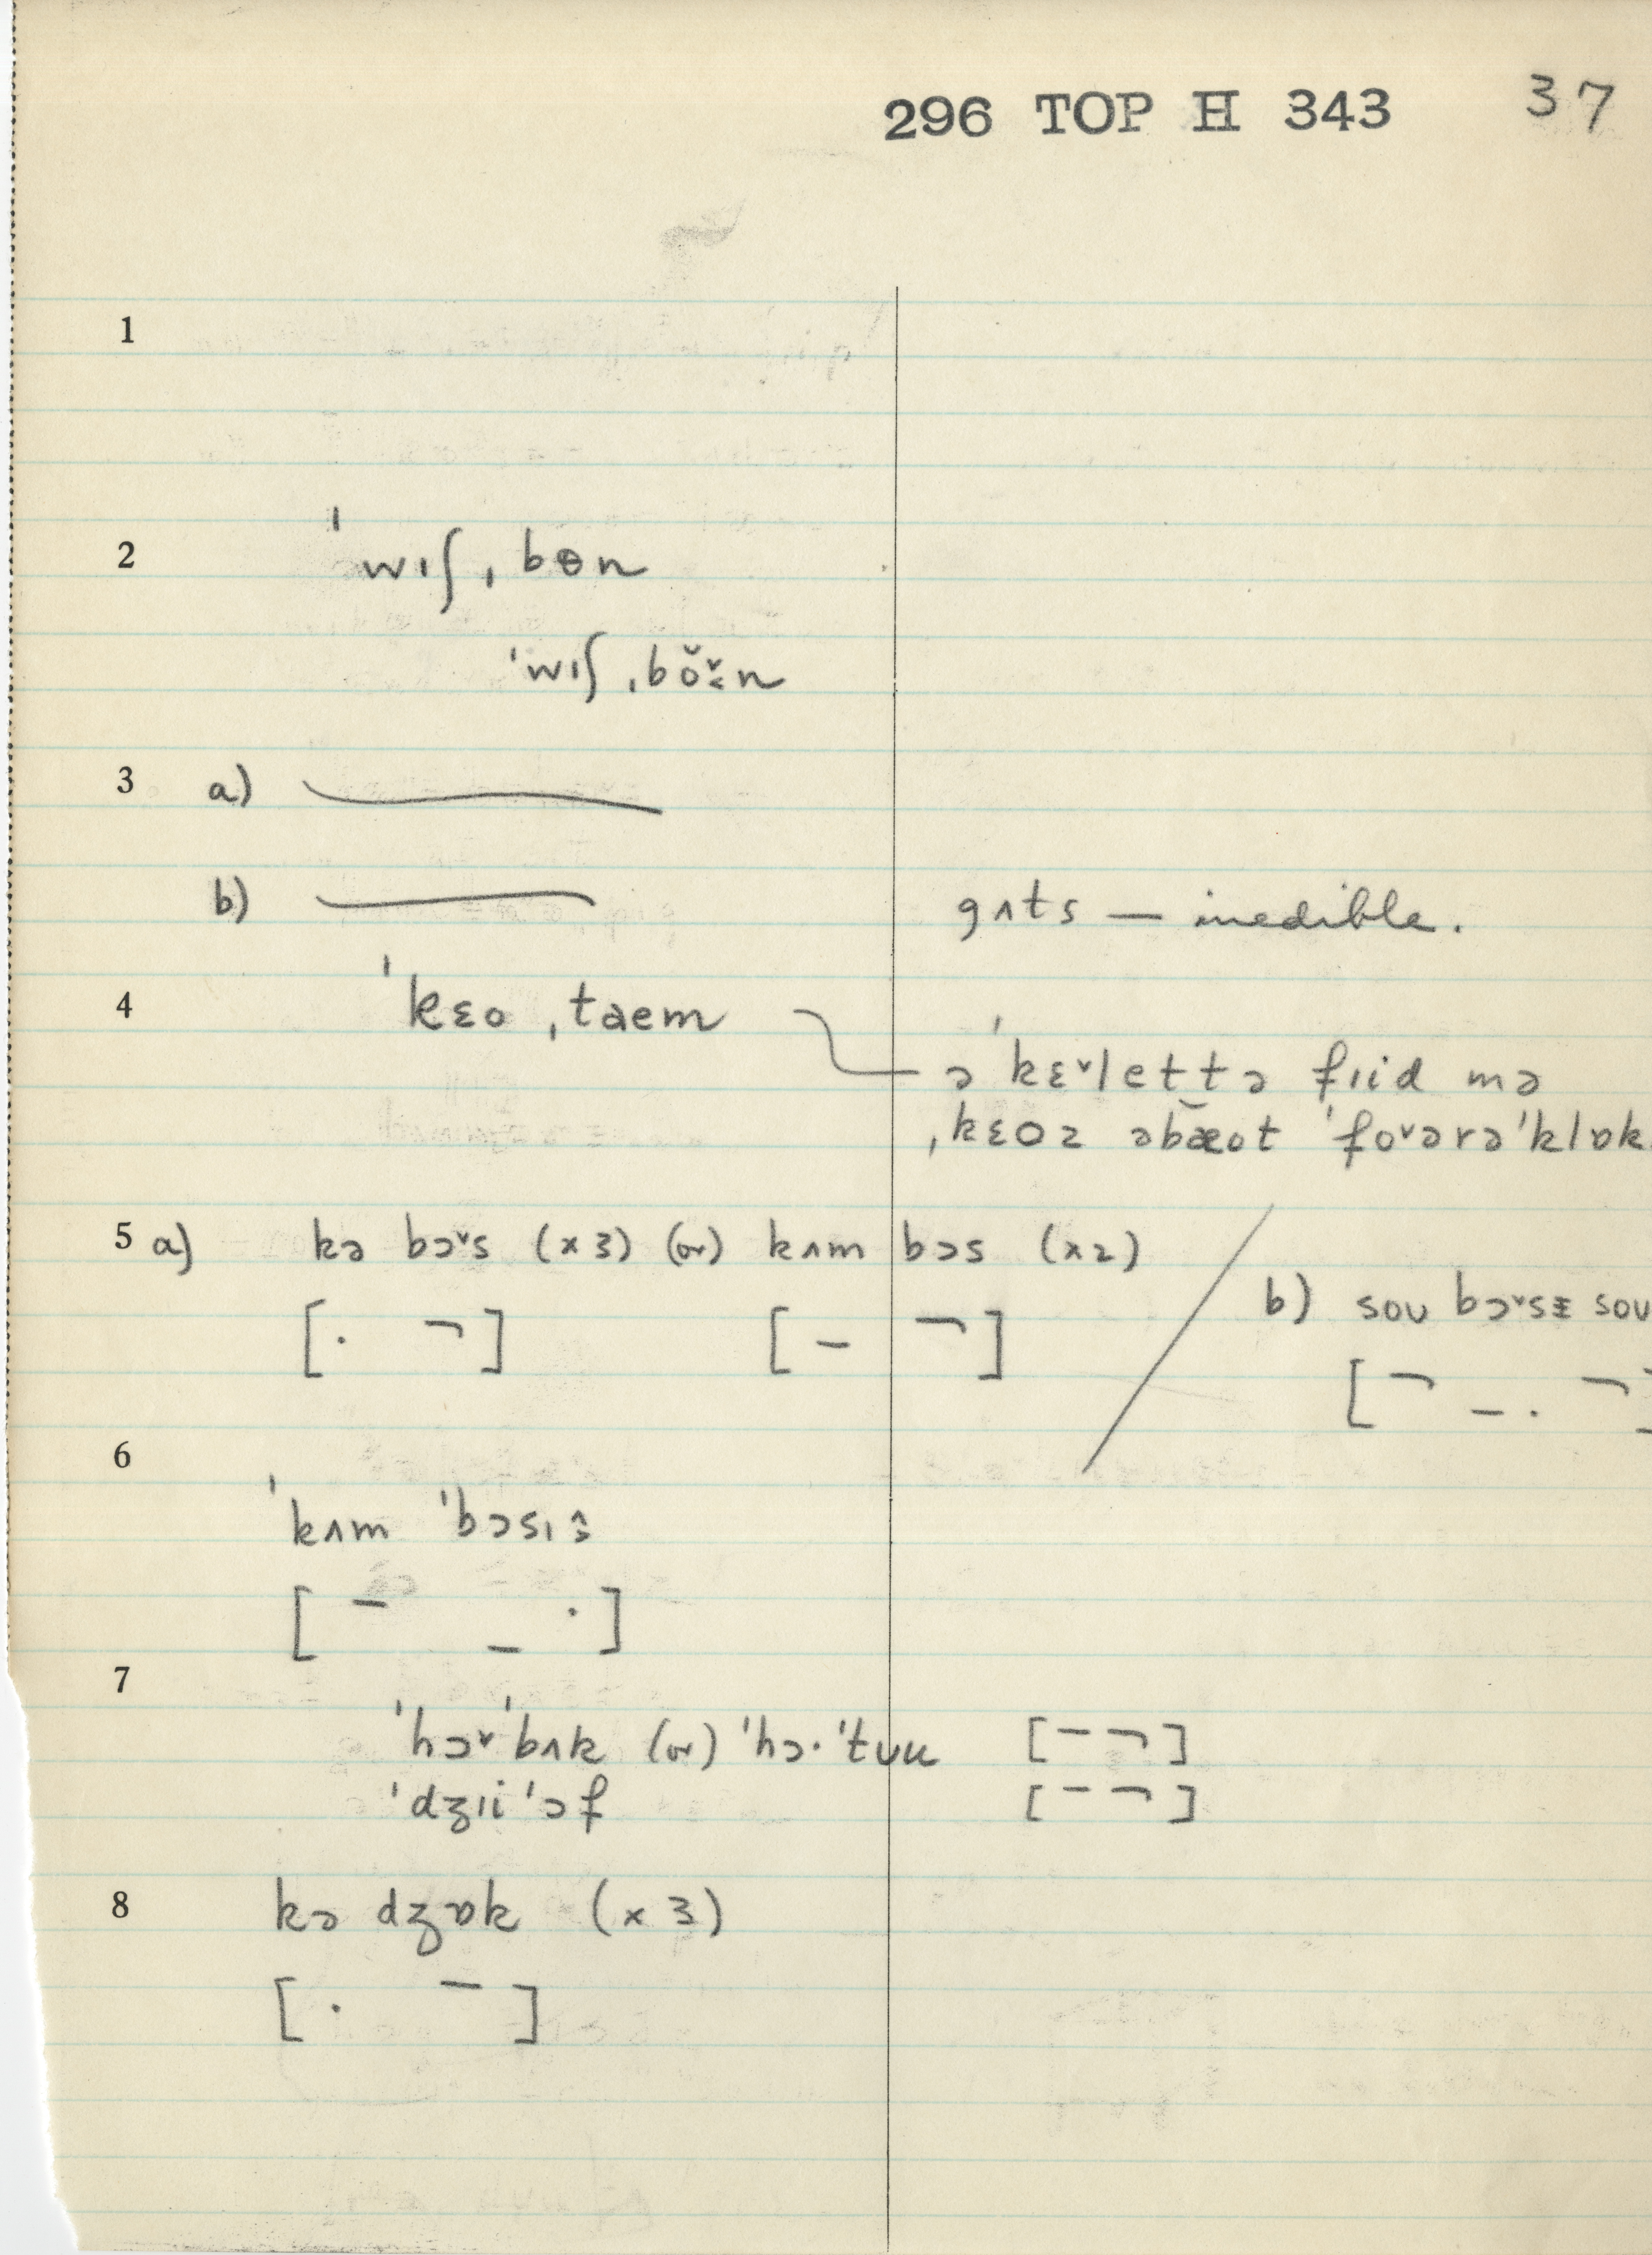 296 TOP H 343 37
1
2 ˈwɪʃ ˌbɵn
ˈwɪʃ ˌbŏ̌ɛn
3 a)
b) gʌts — inedible.
4 ˈkɛo ˌtaem
ə ˈkɛ˅lettə fɪid mə
ˌkɛoz əbæot ˈfo˅ərəˈklɒk
5 a) kə bɔ˅s (x 3) (or) kʌm bɔs (x2)
[· ¬] [– ¬]
b) sou bɔ˅sɪ sou
[¬ – · ¬]
6
ˈkʌm ˈbɔsɪ
[– _ ·]
7
ˈhɔ˅ˈbʌk (or) ˈhɔ·ˈtuu [– ¬]
ˈdʒɪiˈɔf [– ¬]
8 kə dʒɒk (x 3)
[· –]